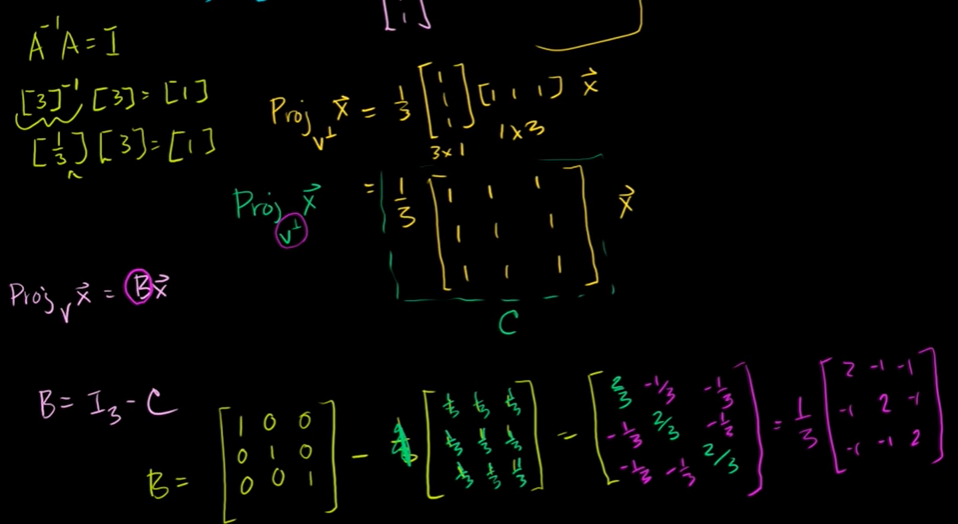 [1]
A⁻¹A = I
[3]⁻¹ [3] = [1]
[1/3] [3] = [1]
Proj_V⊥ x⃗ = 1/3 [1 1 1] [1 1 1] x⃗
3x1 1x3
Proj_V⊥ x⃗ = 1/3 [1 1 1
1 1 1
1 1 1] x⃗
C
Proj_V x⃗ = Bx⃗
B = I₃ - C
B = [1 0 0 - [1/3 1/3 1/3 = [2/3 -1/3 -1/3 = 1/3 [2 -1 -1
0 1 0 1/3 1/3 1/3 -1/3 2/3 -1/3 -1 2 -1
0 0 1] 1/3 1/3 1/3] -1/3 -1/3 2/3] -1 -1 2]